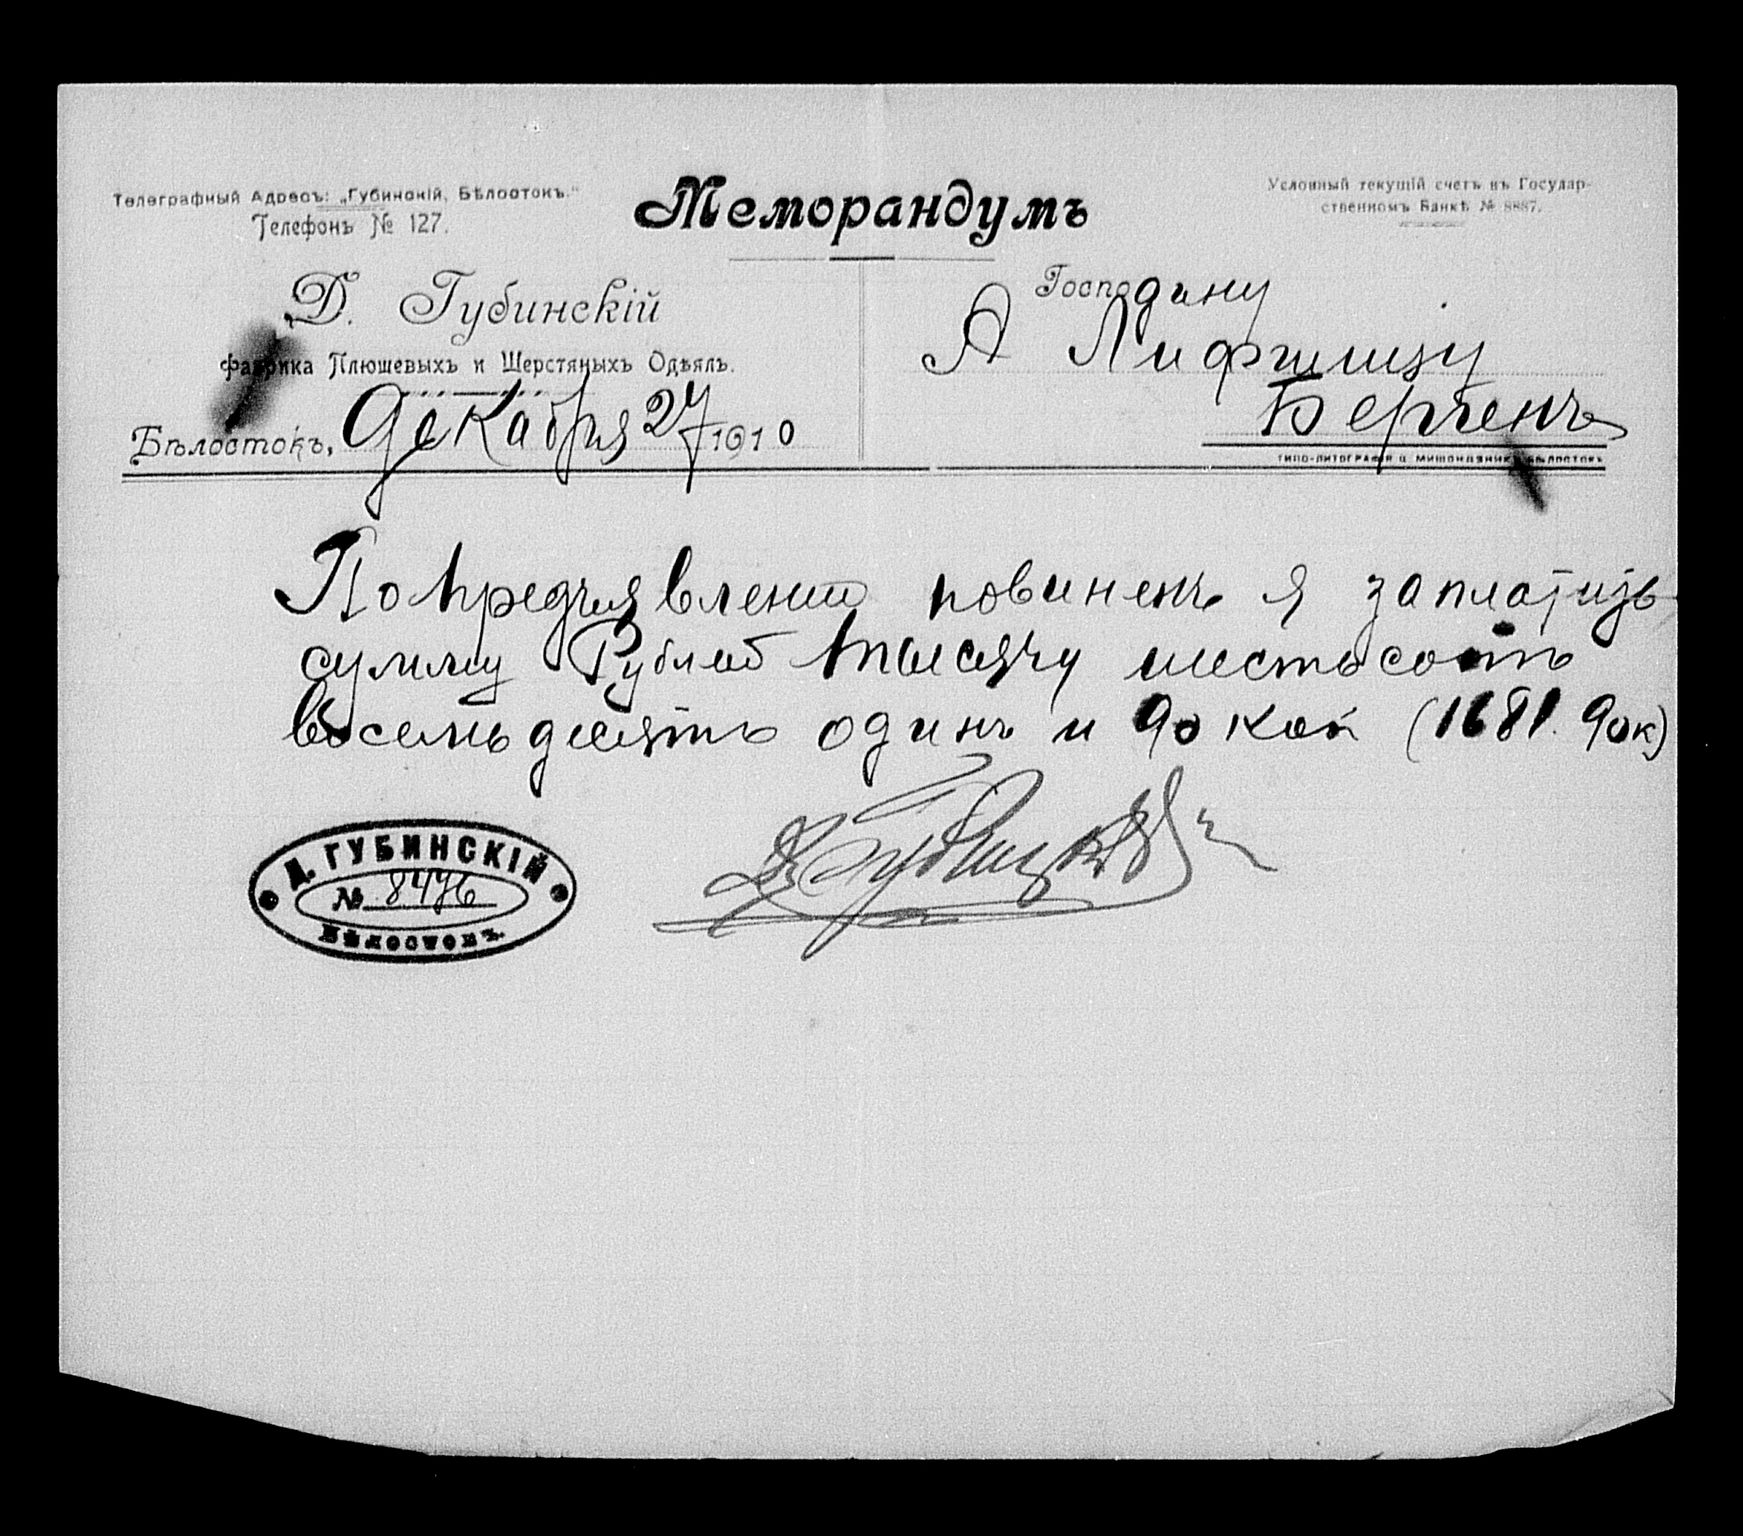 Телеграфный Адресъ: „Губинскій, Бѣлостокъ."
Телефонъ № 127.
Меморандумъ
Условный текущій счетъ въ Государ-
ственномъ Банкѣ № 8887.
Д. Губинскій
Фабрика Плюшевыхъ и Шерстяныхъ Одѣялъ.
Бѣлостокъ, Декабря 27 1910
Господину
А Лифшицу
Бергенъ
ТИПО-ЛИТОГРАФІЯ Ц. МИШОНДЗНИКА БѢЛОСТОКЪ
По предъявленіи повиненъ я заплатить
сумму Рублей тысячу шестьсотъ
восемьдесятъ одинъ и 90 коп (1681. 90к)
Д. Губинскій
Д. ГУБИНСКІЙ
№ 8476
БѢЛОСТОКЪ.